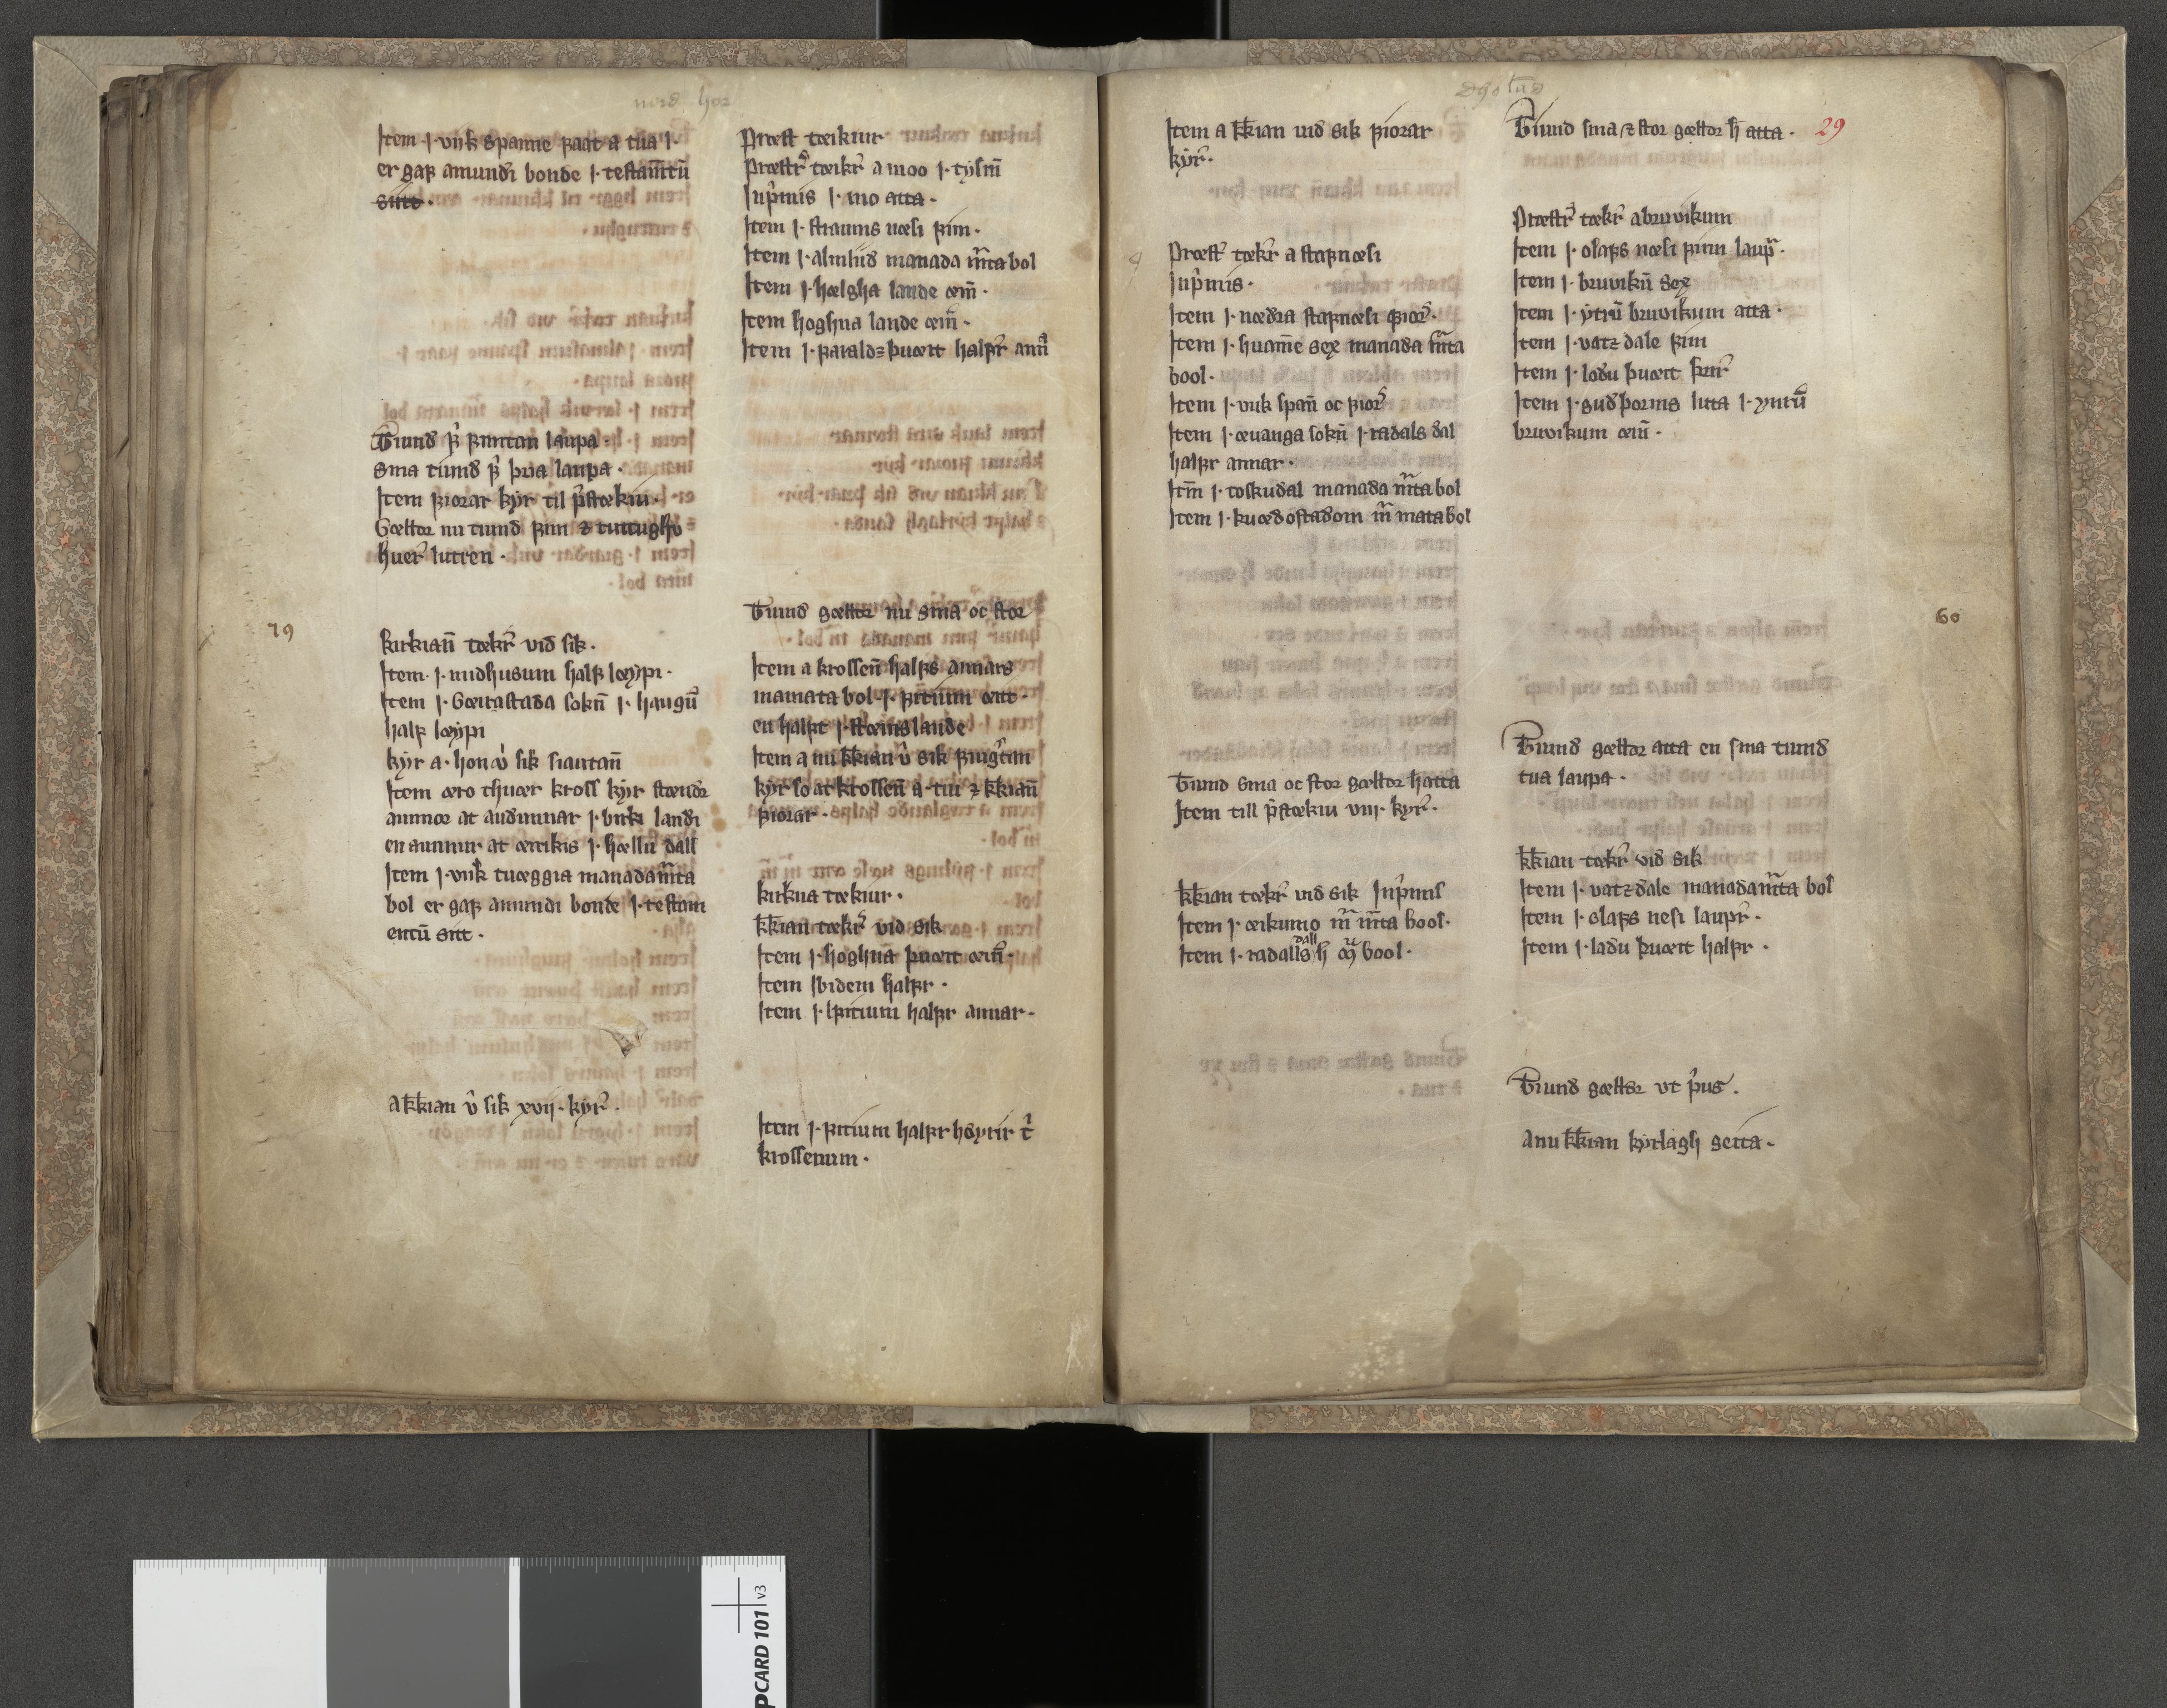 nord hor
Item ꝼ vik spanne ꝼaat a tua ꝼ
er gaꝼ amundi bonde ꝼ testam̄tū
sitt.
Tiund ꝼ͛ ꝼimtan laupa.
Sma tiund ꝼ͛ þria laupa.
Item ꝼiorar kyr til p͛stækiu.
Gældor nu tiund ꝼim ⁊ tuttughu
huer lutren.
79
kirkian̄ tæk͛r vid sik.
Item. j. midhusum halꝼ lœypi.
Item j. Gœitastada sokn̄ j. haugū
halꝼ lœypi
kyr a. hon v͛ sik siautan̄
Item æro thuær kross kyr stænd͛r
annor at audunnar j. birki landi
en annur at æirikis j. hællu dall
Item j. vik tuæggia manadam̄ta
bol er gaꝼ amundi bonde j. testam
entū sitt.
a kk̄ian v͛ sik xvij. kyr͛.
Præst tœkiur
Præstr͛ tœik͛r a moo j. tysm̄
Inp͛mis j. mo atta.
Item j. straums næsi ꝼim.
Item j. almlid manada m̄ta bol
Item j. hælgha lande œin̄.
Item hoghna lande œin̄.
Item j. haraldz þuœit halꝼr ann͛
Tiund gældor nu sma oc stor
Item a krossen̄ halꝼs annars
mamata bol j. ꝼitium œitt.
en halꝼt j. stœinslande
Item a nu kk̄ian v͛ sik ꝼiugtan
kyr so at krossen̄ a. tiu ⁊ kk̄ian̄
ꝼiorar.
kirkna tækiur.
kk̄ian tæk͛r vid sik
Item j. hoghna þuœit œin̄.
Item ibidem halꝼr.
Item j. ꝼitium halꝼr annar.
Item j. ꝼitium halꝼr hoyrir t͛
krossenum.
Item a kk̄ian vid sik ꝼiorar
kyr͛.
Præst͛ tæk͛r a staꝼnæsi
Inp͛mis.
Item j. nædra staꝼnæsi ꝼior͛.
Item j. huam̄e sex manada m̄ta
bool.
Item j. vik span̄ oc ꝼior͛
Item j. œuanga sokn̄ j. radals dal
halꝼr annar.
Itm̄ j. toskudal manada m̄ta bol
Item j. kuædostadom m̄ mata bol
Tiund Sma oc stor gældor h̄ atta
Item till p͛stækiu viij. kyr͛.
kk̄ian tæk͛r vid sik Inp͛mis
Item j. œikumo m̄ m̄ta bool.
dall
Item j. radalls h̄ m̄ bool.
Tiund sma ⁊ stor gældor h̄ atta. 29
Præstr͛ tæk͛r a bruvikum
Item j. olaꝼs næsi ꝼim laup͛.
Item j. bruvikū sex
Item j. ytrū bruvikum atta.
Item j. vatz dale ꝼim
Item j. lodu þuœit ꝼiur͛
Item j. gudþorms lutta j. ynrū
bruvikum œin̄.
60
Tiund gældor atta en sma tiund
tua laupa.
kk̄ian tæk͛r vid sik
Item j. vatzdale manadam̄ta bol
Item j. olaꝼs nesi laup͛r.
Item j. ladu þuœit halꝼr.
Tiund gældor vt p͛us.
a nu kk̄ian kyrlagh setta.
CARD 101 v3